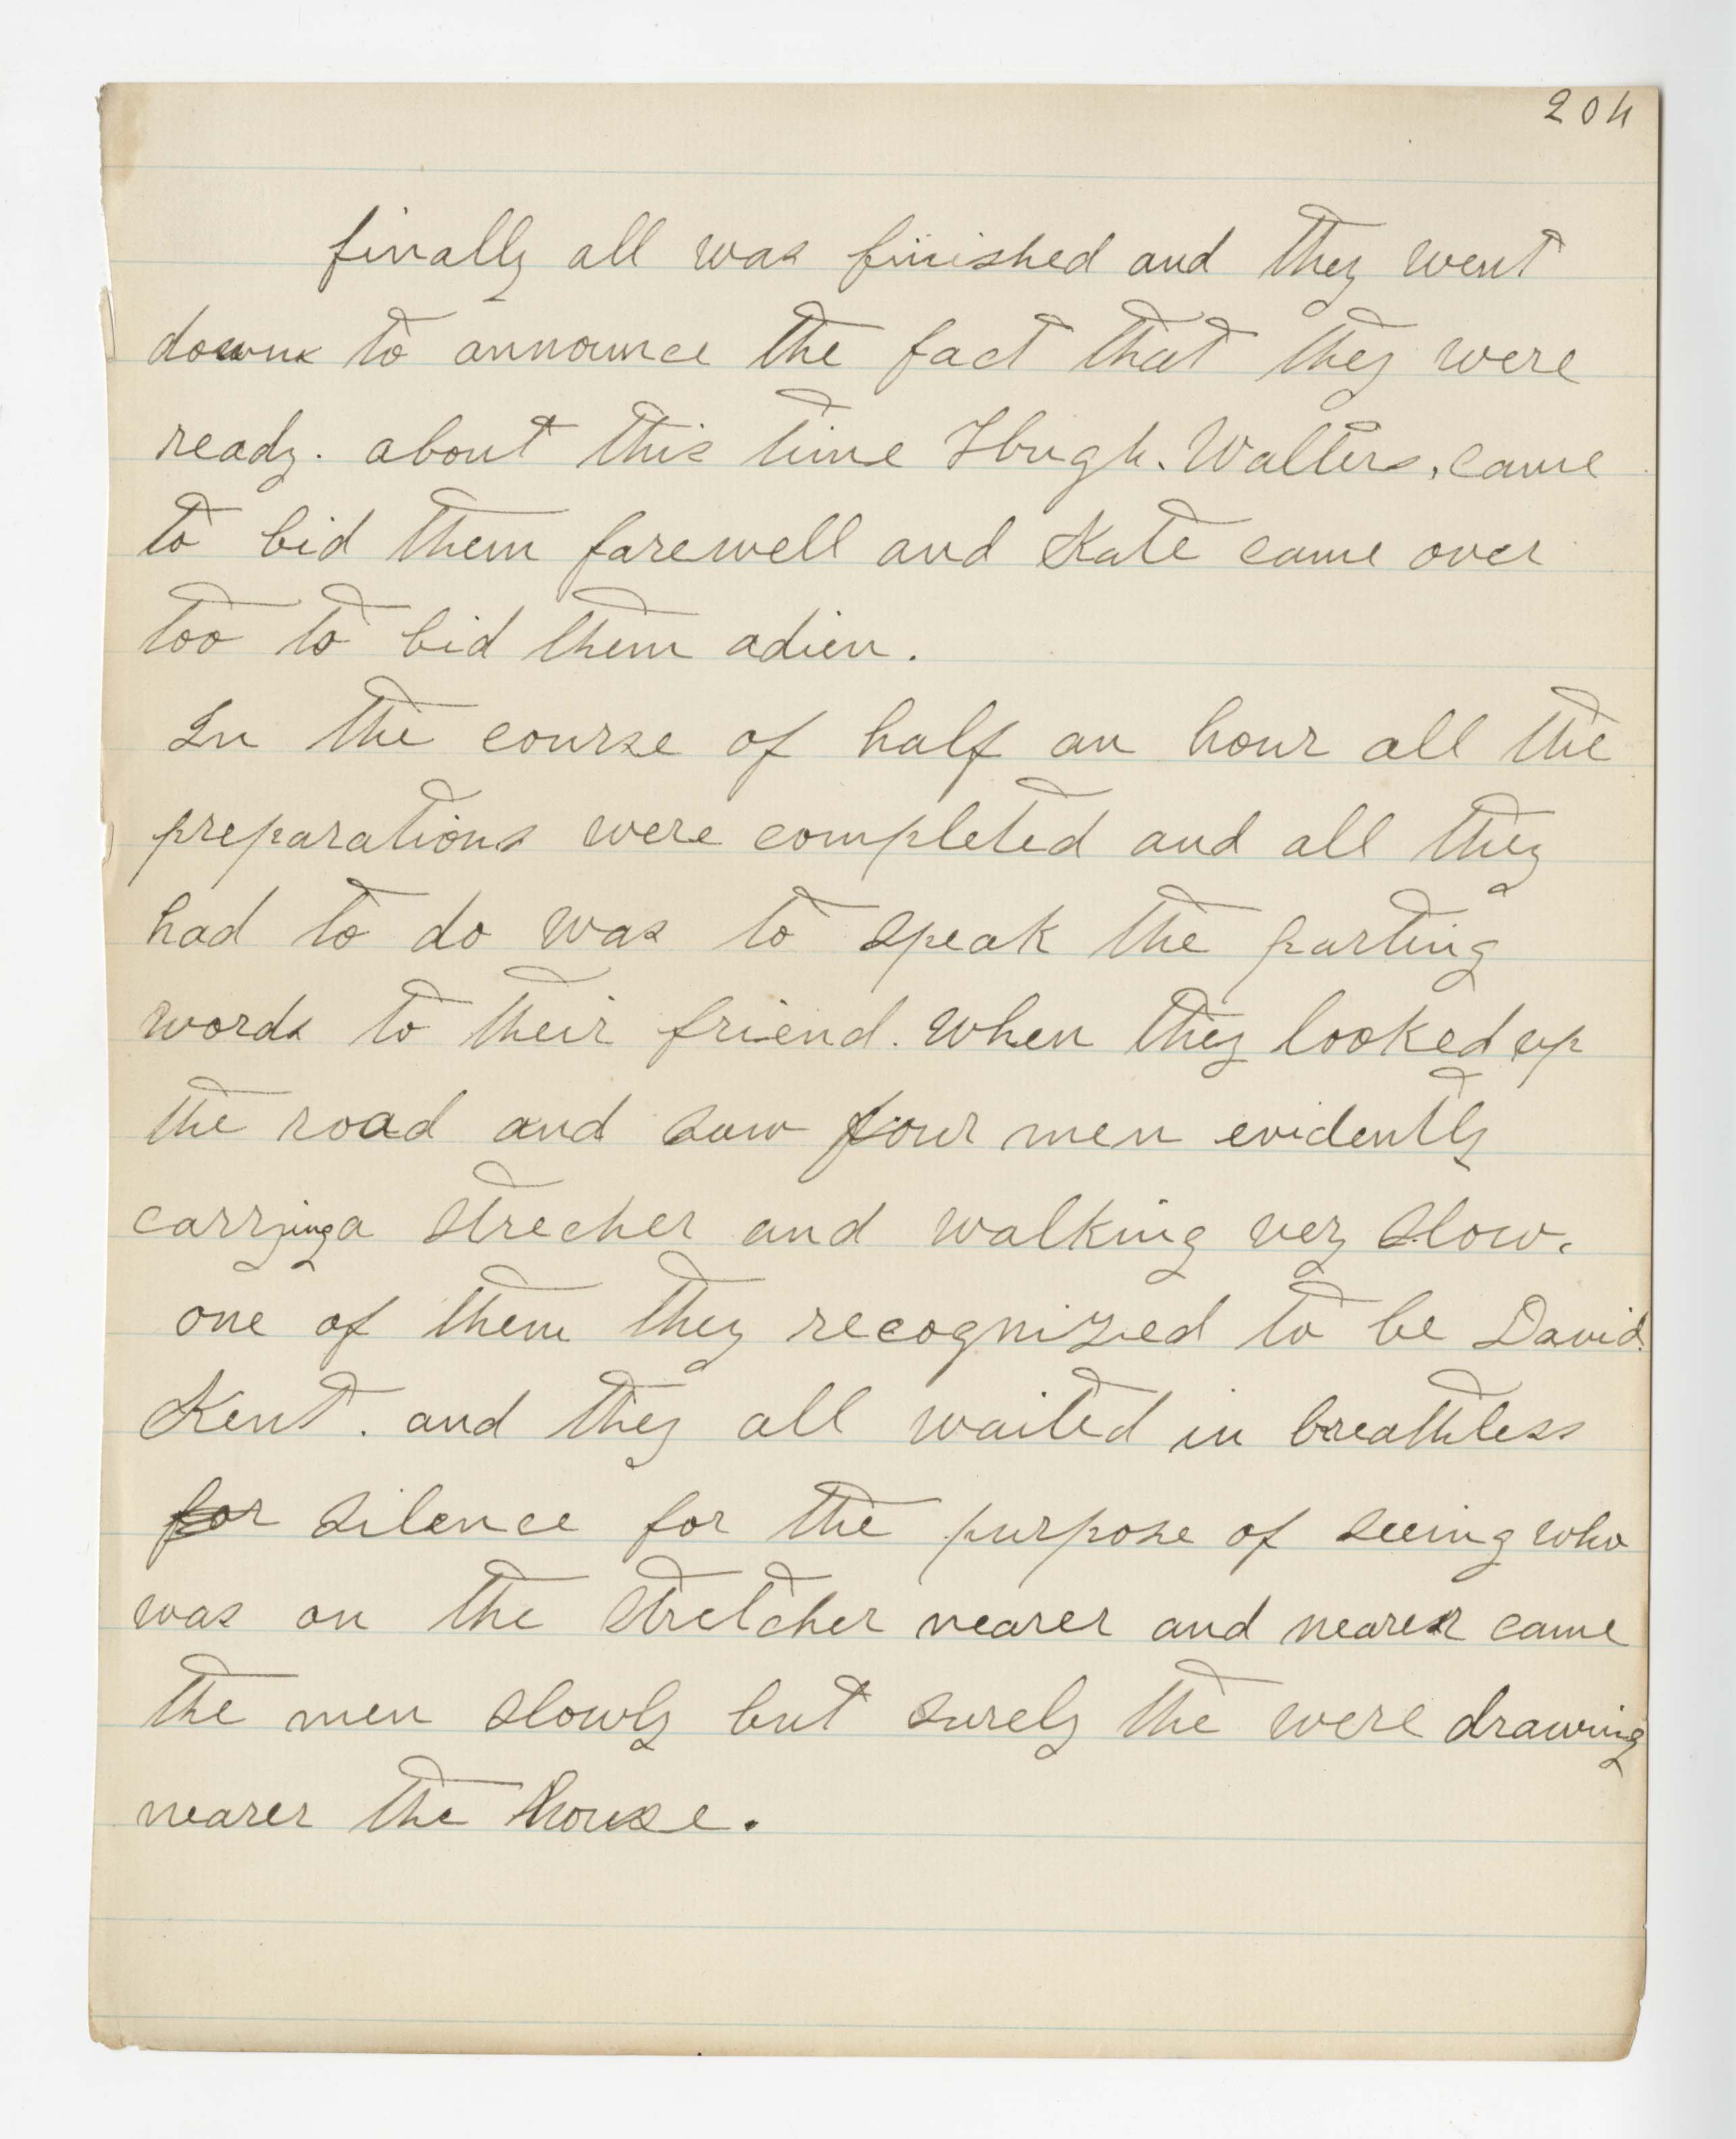 204
finally all was finished and they went
down to announce the fact that they were
ready. about this time Hugh. Walters, came
to bid them farewell and Kate came over
too to bid them adieu.
In the course of half an hour all the
preparations were completed and all they
had to do was to speak the parting
words to their friend. When they looked up
the road and saw four men evidently
carrying a strecher and walking very slow.
one of them they recognized to be David.
Kent. and they all waited in breathless
for silence for the purpose of seeing who
was on the stretcher nearer and nearer came
the men slowly but surely the were drawing
nearer the house.